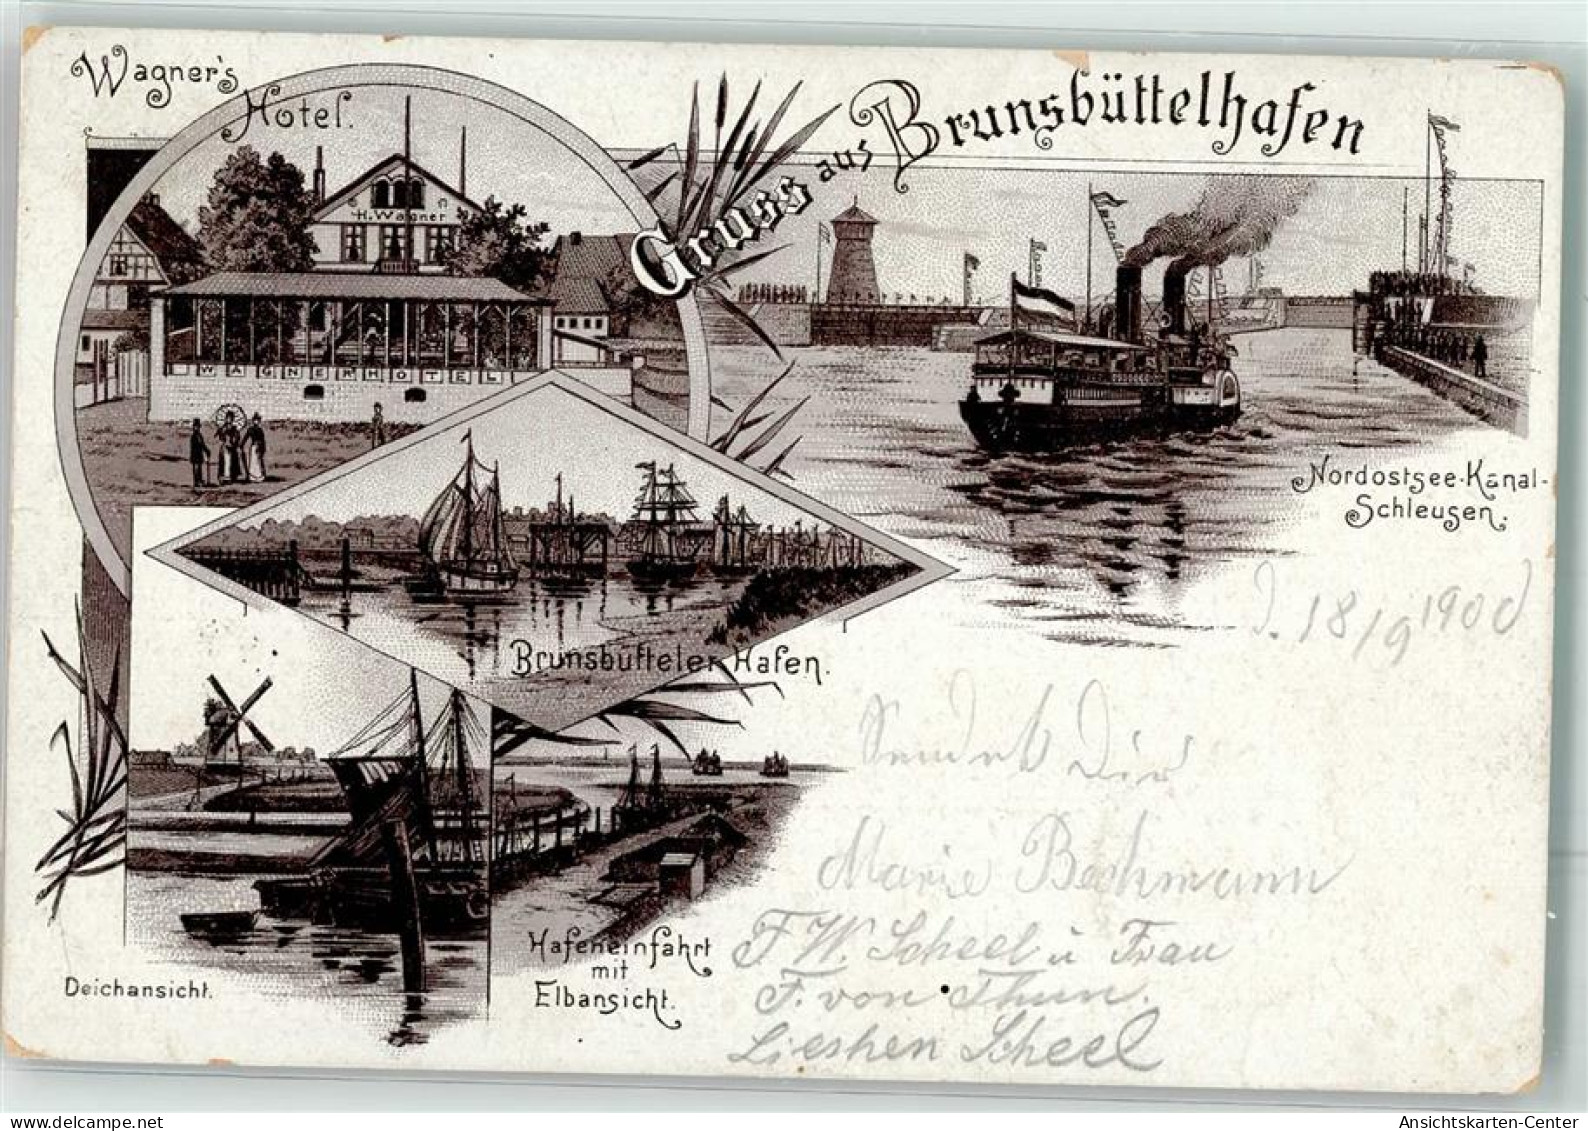 Wagner's
Hotel.
Gruss aus Brunsbüttelhafen
H. Wagner
WAGNER HOTEL
Nordostsee-Kanal-
Schleusen.
Brunsbütteler Hafen.
d. 18/9 1900
Sendet Dir
Marie Beckmann
F. W. Scheel u Frau
F. von Thun.
Lieshen Scheel
Hafeneinfahrt
mit
Elbansicht.
Deichansicht.
Ansichtskarten-Center